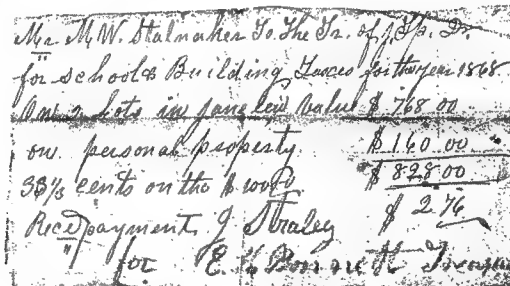 Mr. M. W. Stalnaker To The Tr. of J. Tp. Dr.
for schools Building Taxes for the year 1868
On 2 lots in Jane Lew Value $ 768 00
on personal property $ 160 00
33⅓ cents on the $ 100 $ 828 00
Rece payment J Straley $ 2 76
for E Bonnett